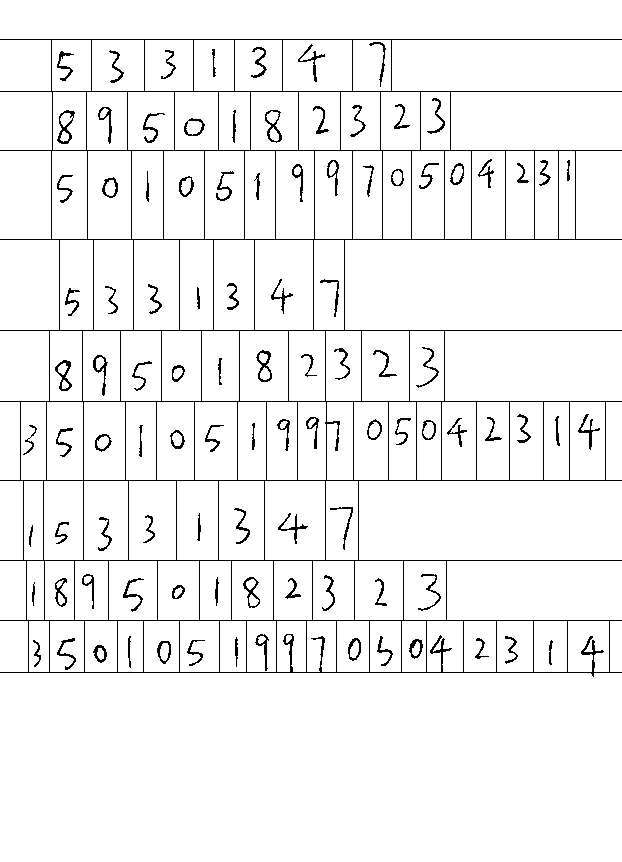 5331347
8950182323
5010519970504231
5331347
8950182323
350105199705042314
15331347
18950182323
350105199705042314